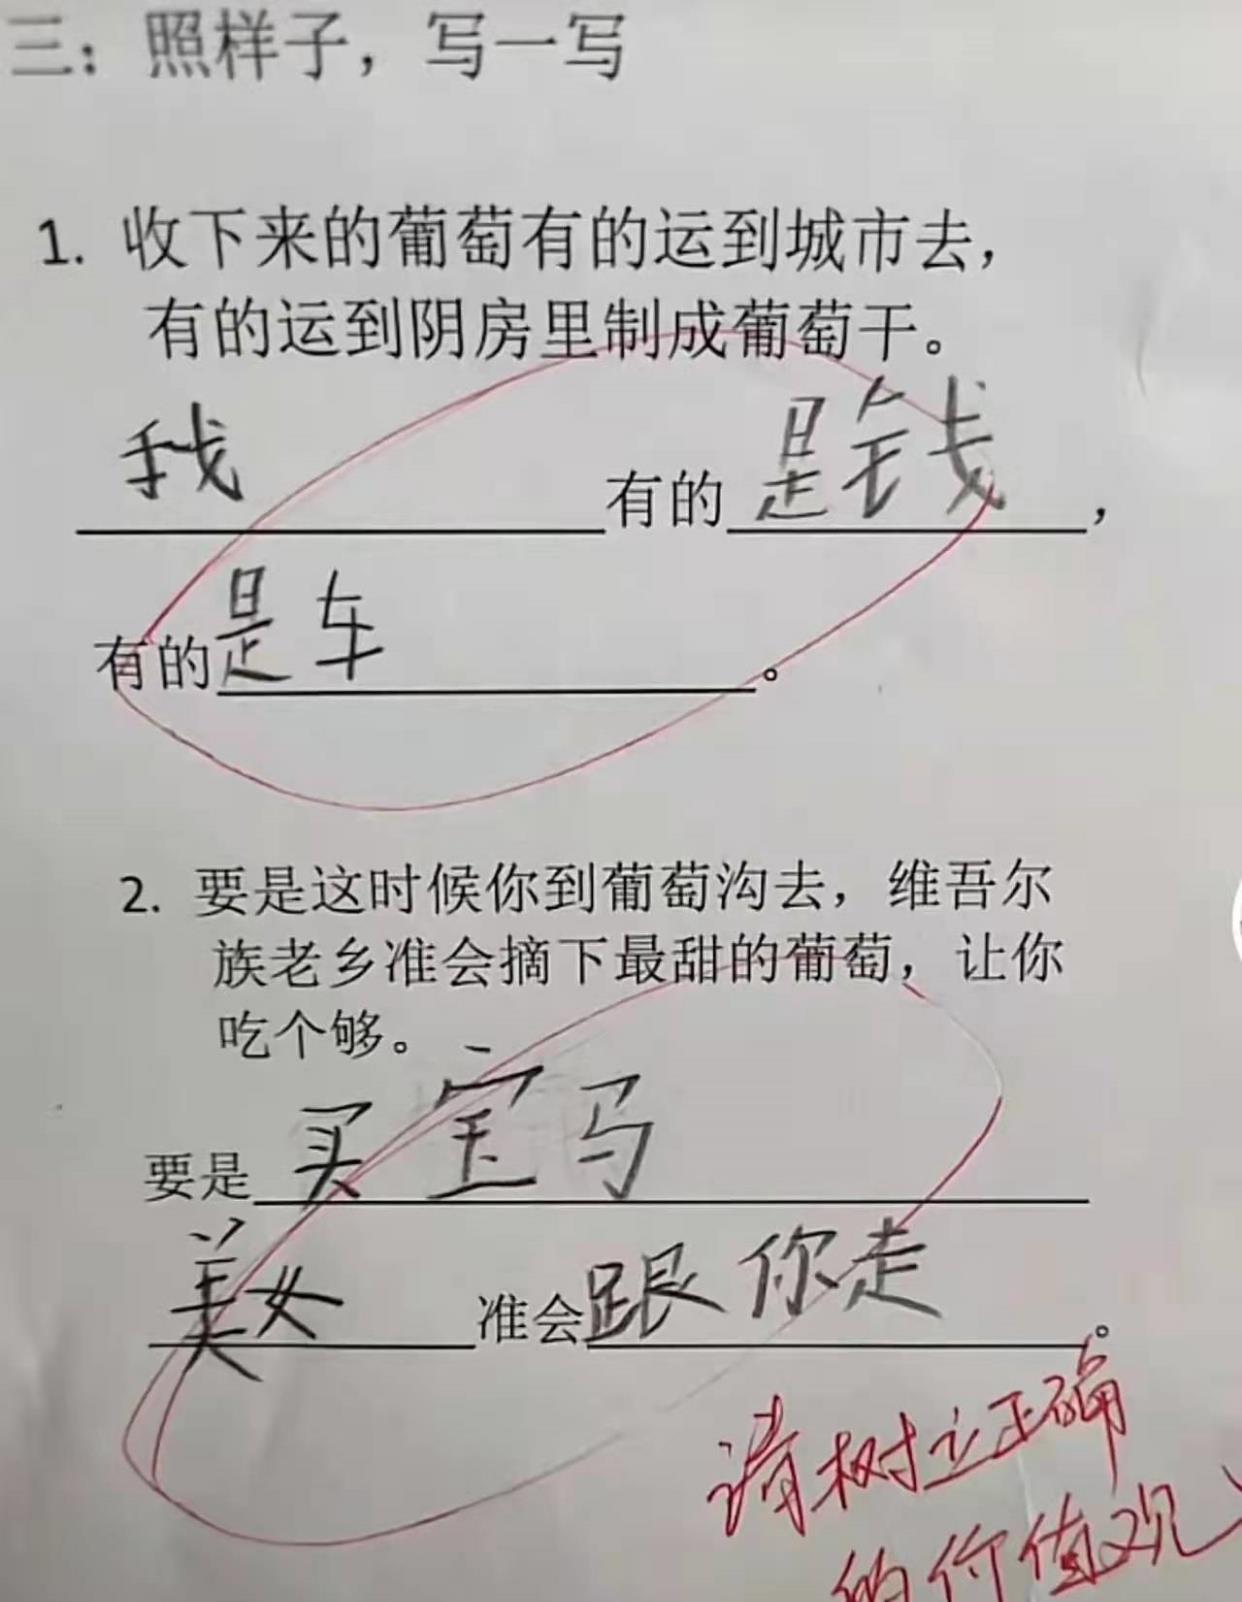 三：照样子，写一写
1. 收下来的葡萄有的运到城市去，
有的运到阴房里制成葡萄干。
我有的是钱，
有的是车。
2. 要是这时候你到葡萄沟去，维吾尔
族老乡准会摘下最甜的葡萄，让你
吃个够。
要是买宝马
美女准会跟你走。
请树立正确
的价值观